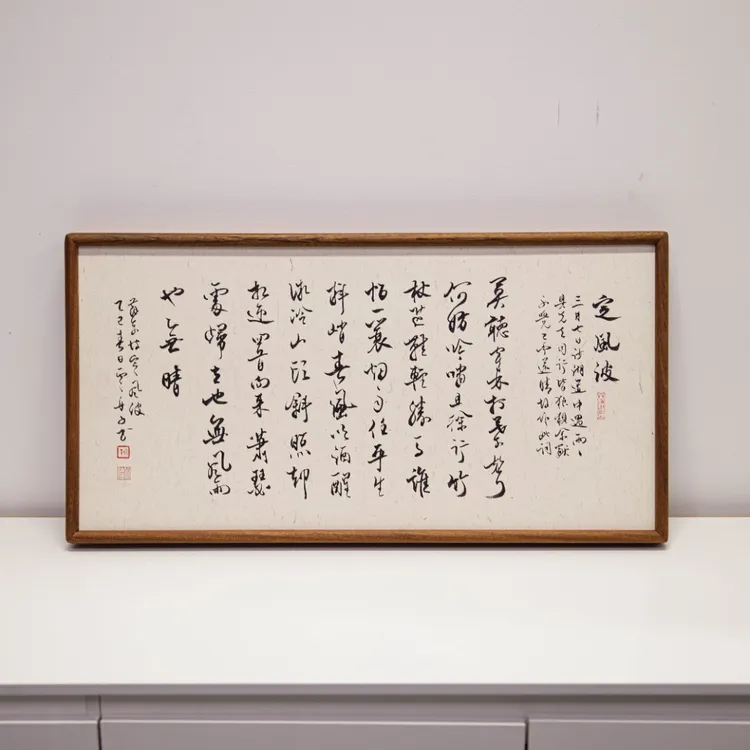 定風波
三月七日沙湖道中遇雨〻
具先去同行皆狼狽余獨
不覺已而遂晴故作此詞
莫聽穿林打葉聲
何妨吟嘯且徐行竹
杖芒鞋輕勝馬誰
怕一蓑烟雨任平生
料峭春風吹酒醒
微冷山頭斜照却
相迎回首向來蕭瑟
處歸去也無風雨
也無晴
蘇東坡定風波
乙巳春日書